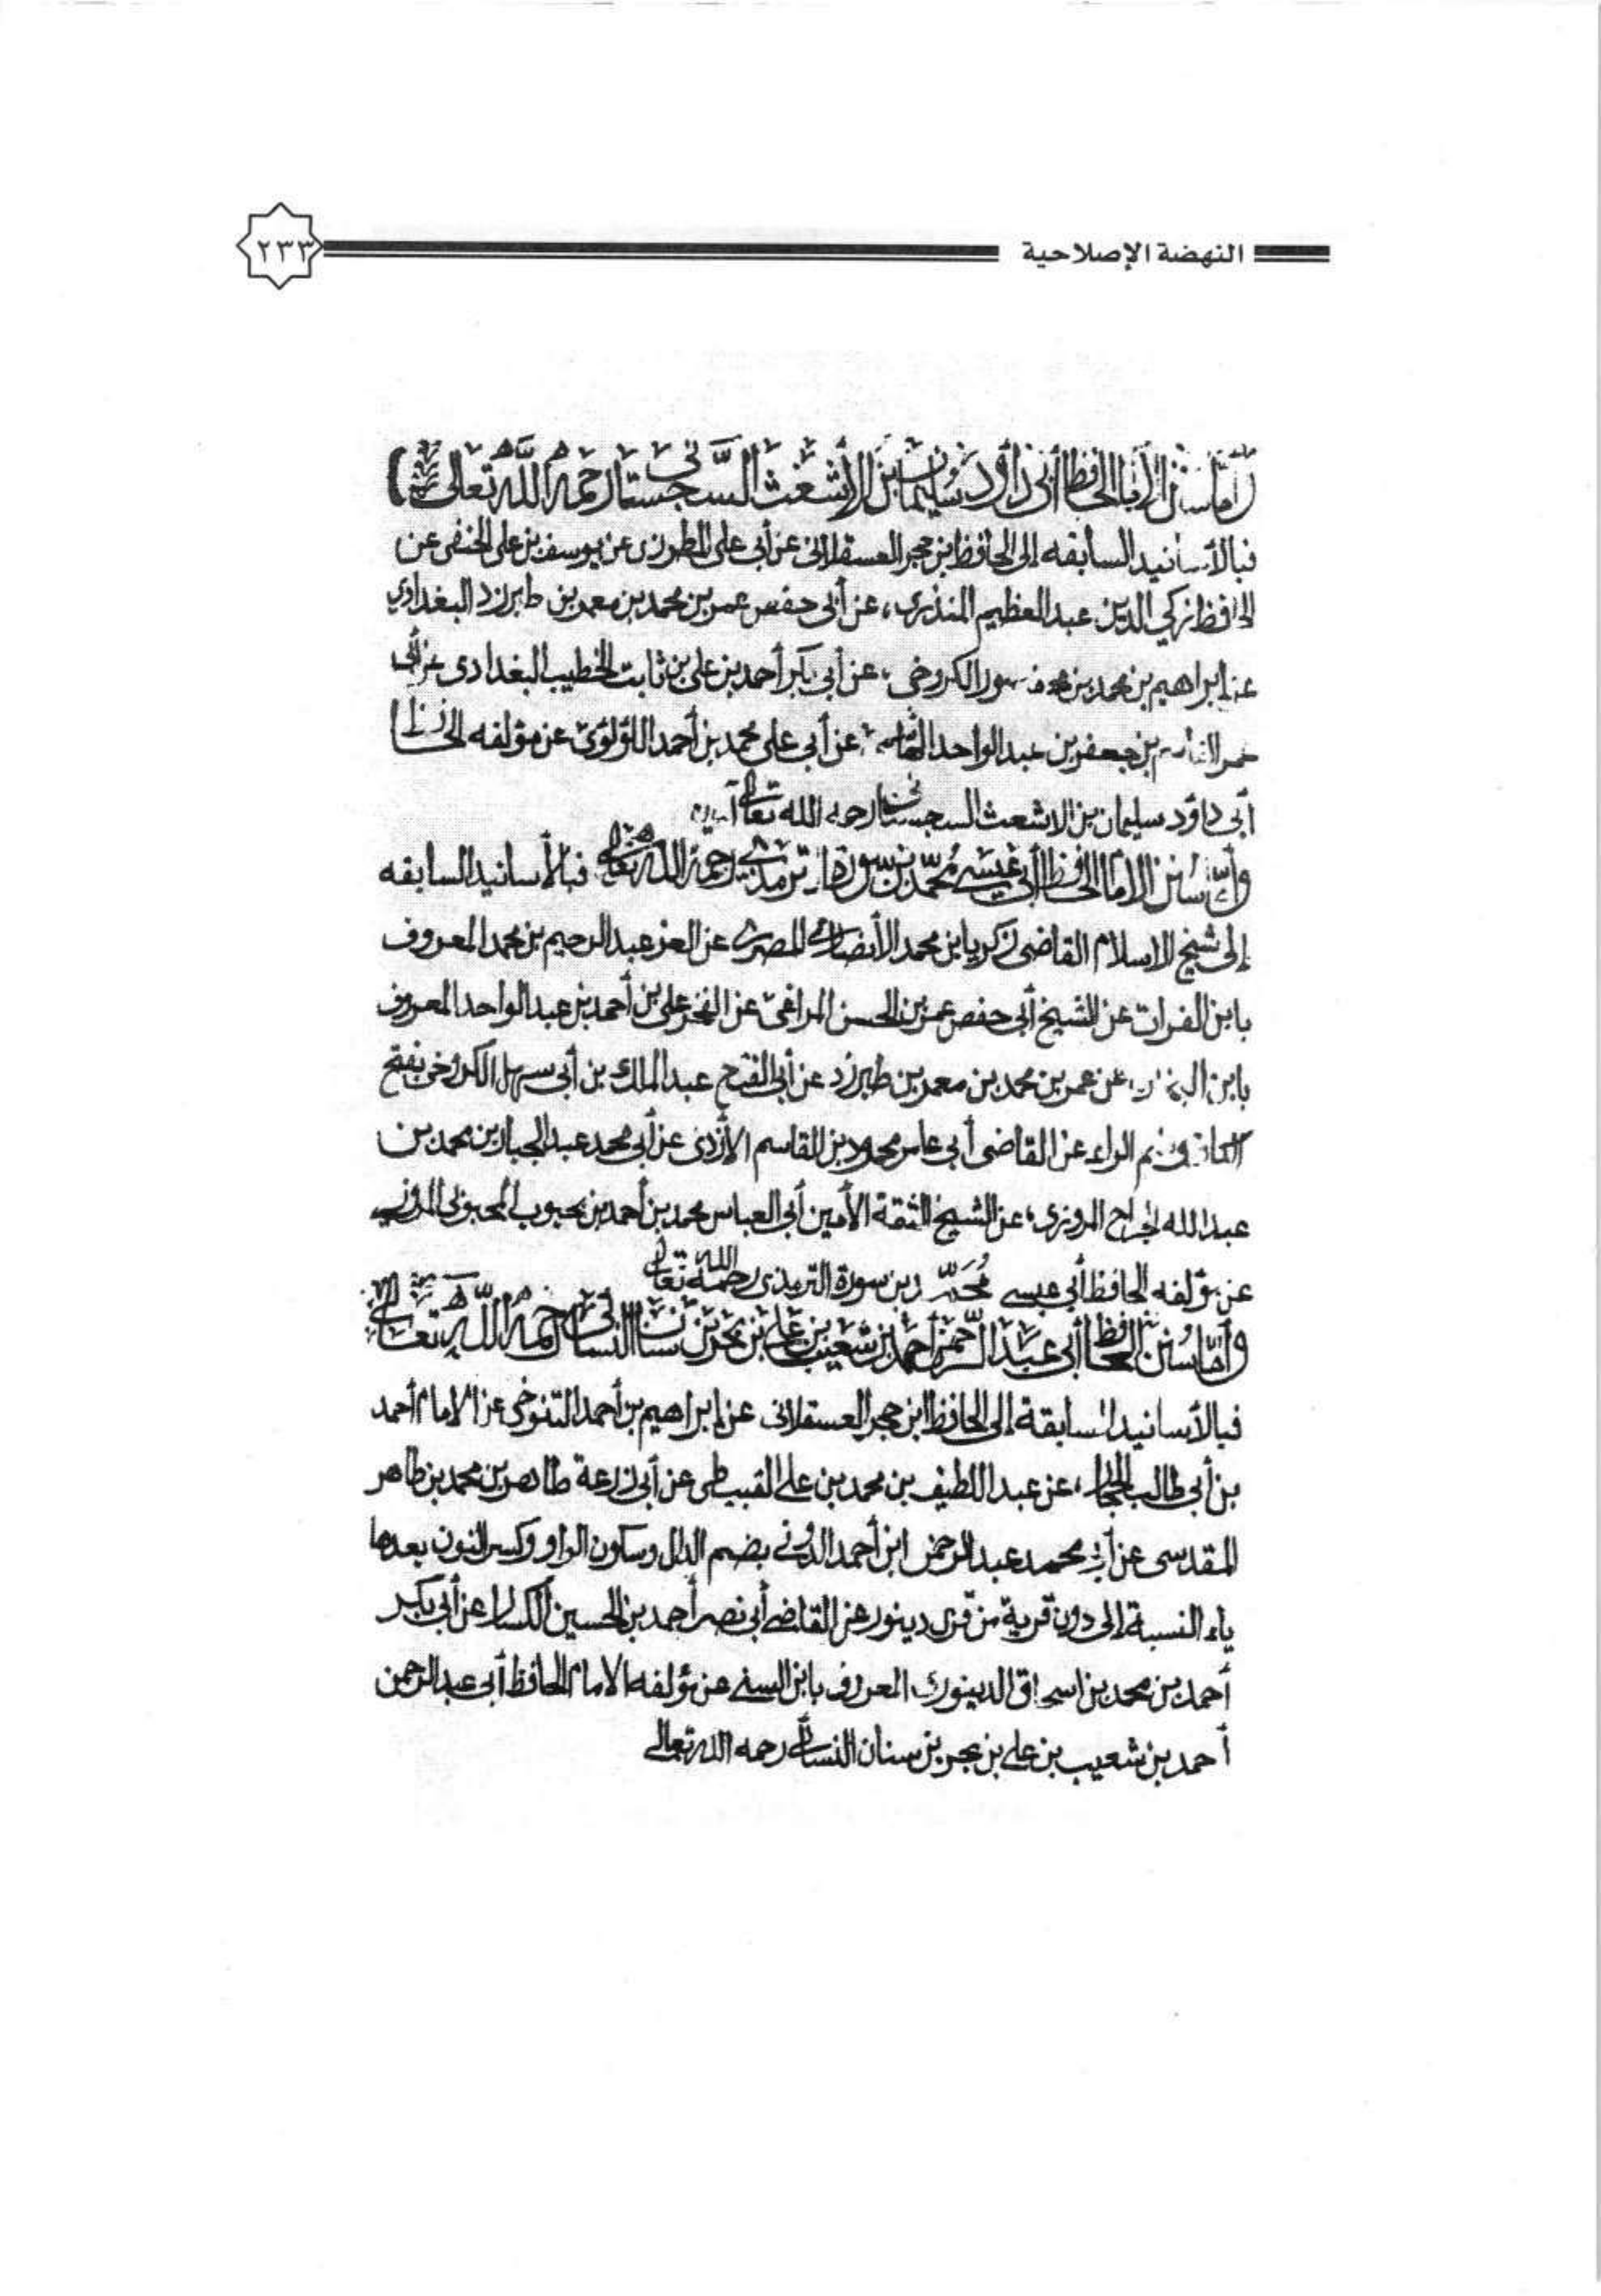 النهضة الإصلاحية
٢٣٣
وأما سنن الإمام الحافظ أبي داود سليمان بن الأشعث السجستاني رحمه الله تعالى
فبالأسانيد السابقه إلى الحافظ ابن حجر العسقلاني عن أبي علي المطرزي عن يوسف بن علي الحنفي عن
الحافظ زكي الدين عبد العظيم المنذري، عن أبي حفص عمر بن محمد بن معمر بن طبرزد البغدادي
عن إبراهيم بن محمد بن منصور الكروخي، عن أبي بكر أحمد بن علي بن ثابت الخطيب البغدادي عن أبي
عمر القاسم بن جعفر بن عبد الواحد الهاشمي، عن أبي علي محمد بن أحمد اللؤلؤي عن مؤلفه الحافظ
أبي داؤد سليمان بن الاشعث السجستاني رحمه الله تعالى آمين
وأما سنن الإمام الحافظ أبي عيسى محمد بن سورة الترمذي رحمه الله تعالى فبالأسانيد السابقه
إلى شيخ الاسلام القاضي زكريا بن محمد الأنصاري المصري عن العز عبد الرحيم بن محمد المعروف
بابن الفرات عن الشيخ أبي حفص عمر بن الحسن المراغي عن الفخر علي بن أحمد بن عبد الواحد المعروف
بابن البخاري عن عمر بن محمد بن معمر بن طبرزد عن أبي الفتح عبد الملك بن أبي سهل الكروخي بفتح
الكاف وضم الراء عن القاضي أبي عامر محمود بن القاسم الازدي عن أبي محمد عبد الجبار بن محمد بن
عبد الله الجراح المروزي، عن الشيخ الثقة الأمين أبي العباس محمد بن أحمد بن محبوب المحبوبي المروزي
عن مؤلفه الحافظ أبي عيسى محمد بن سورة الترمذي رحمه الله تعالى
وأما سنن الحافظ أبي عبد الرحمن أحمد بن شعيب بن علي بن بحر بن سنان النسائي رحمه الله تعالى
فبالأسانيد السابقة إلى الحافظ ابن حجر العسقلاني عن إبراهيم بن أحمد التنوخي عن الامام أحمد
بن أبي طالب الحجار، عن عبد اللطيف بن محمد بن علي القبيطي عن أبي زرعة طاهر بن محمد بن طاهر
المقدسي عن أبي محمد عبد الرحمن ابن أحمد الدوني بضم الدال وسكون الواو وكسر النون بعدها
ياء النسبة إلى دون قرية من قرى دينور عن القاضي أبي نصر أحمد بن الحسين الكسار عن أبي بكر
أحمد بن محمد بن اسحاق الدينوري المعروف بابن السني عن مؤلفه الامام الحافظ أبي عبد الرحمن
أحمد بن شعيب بن علي بن بحر بن سنان النسائي رحمه الله تعالى